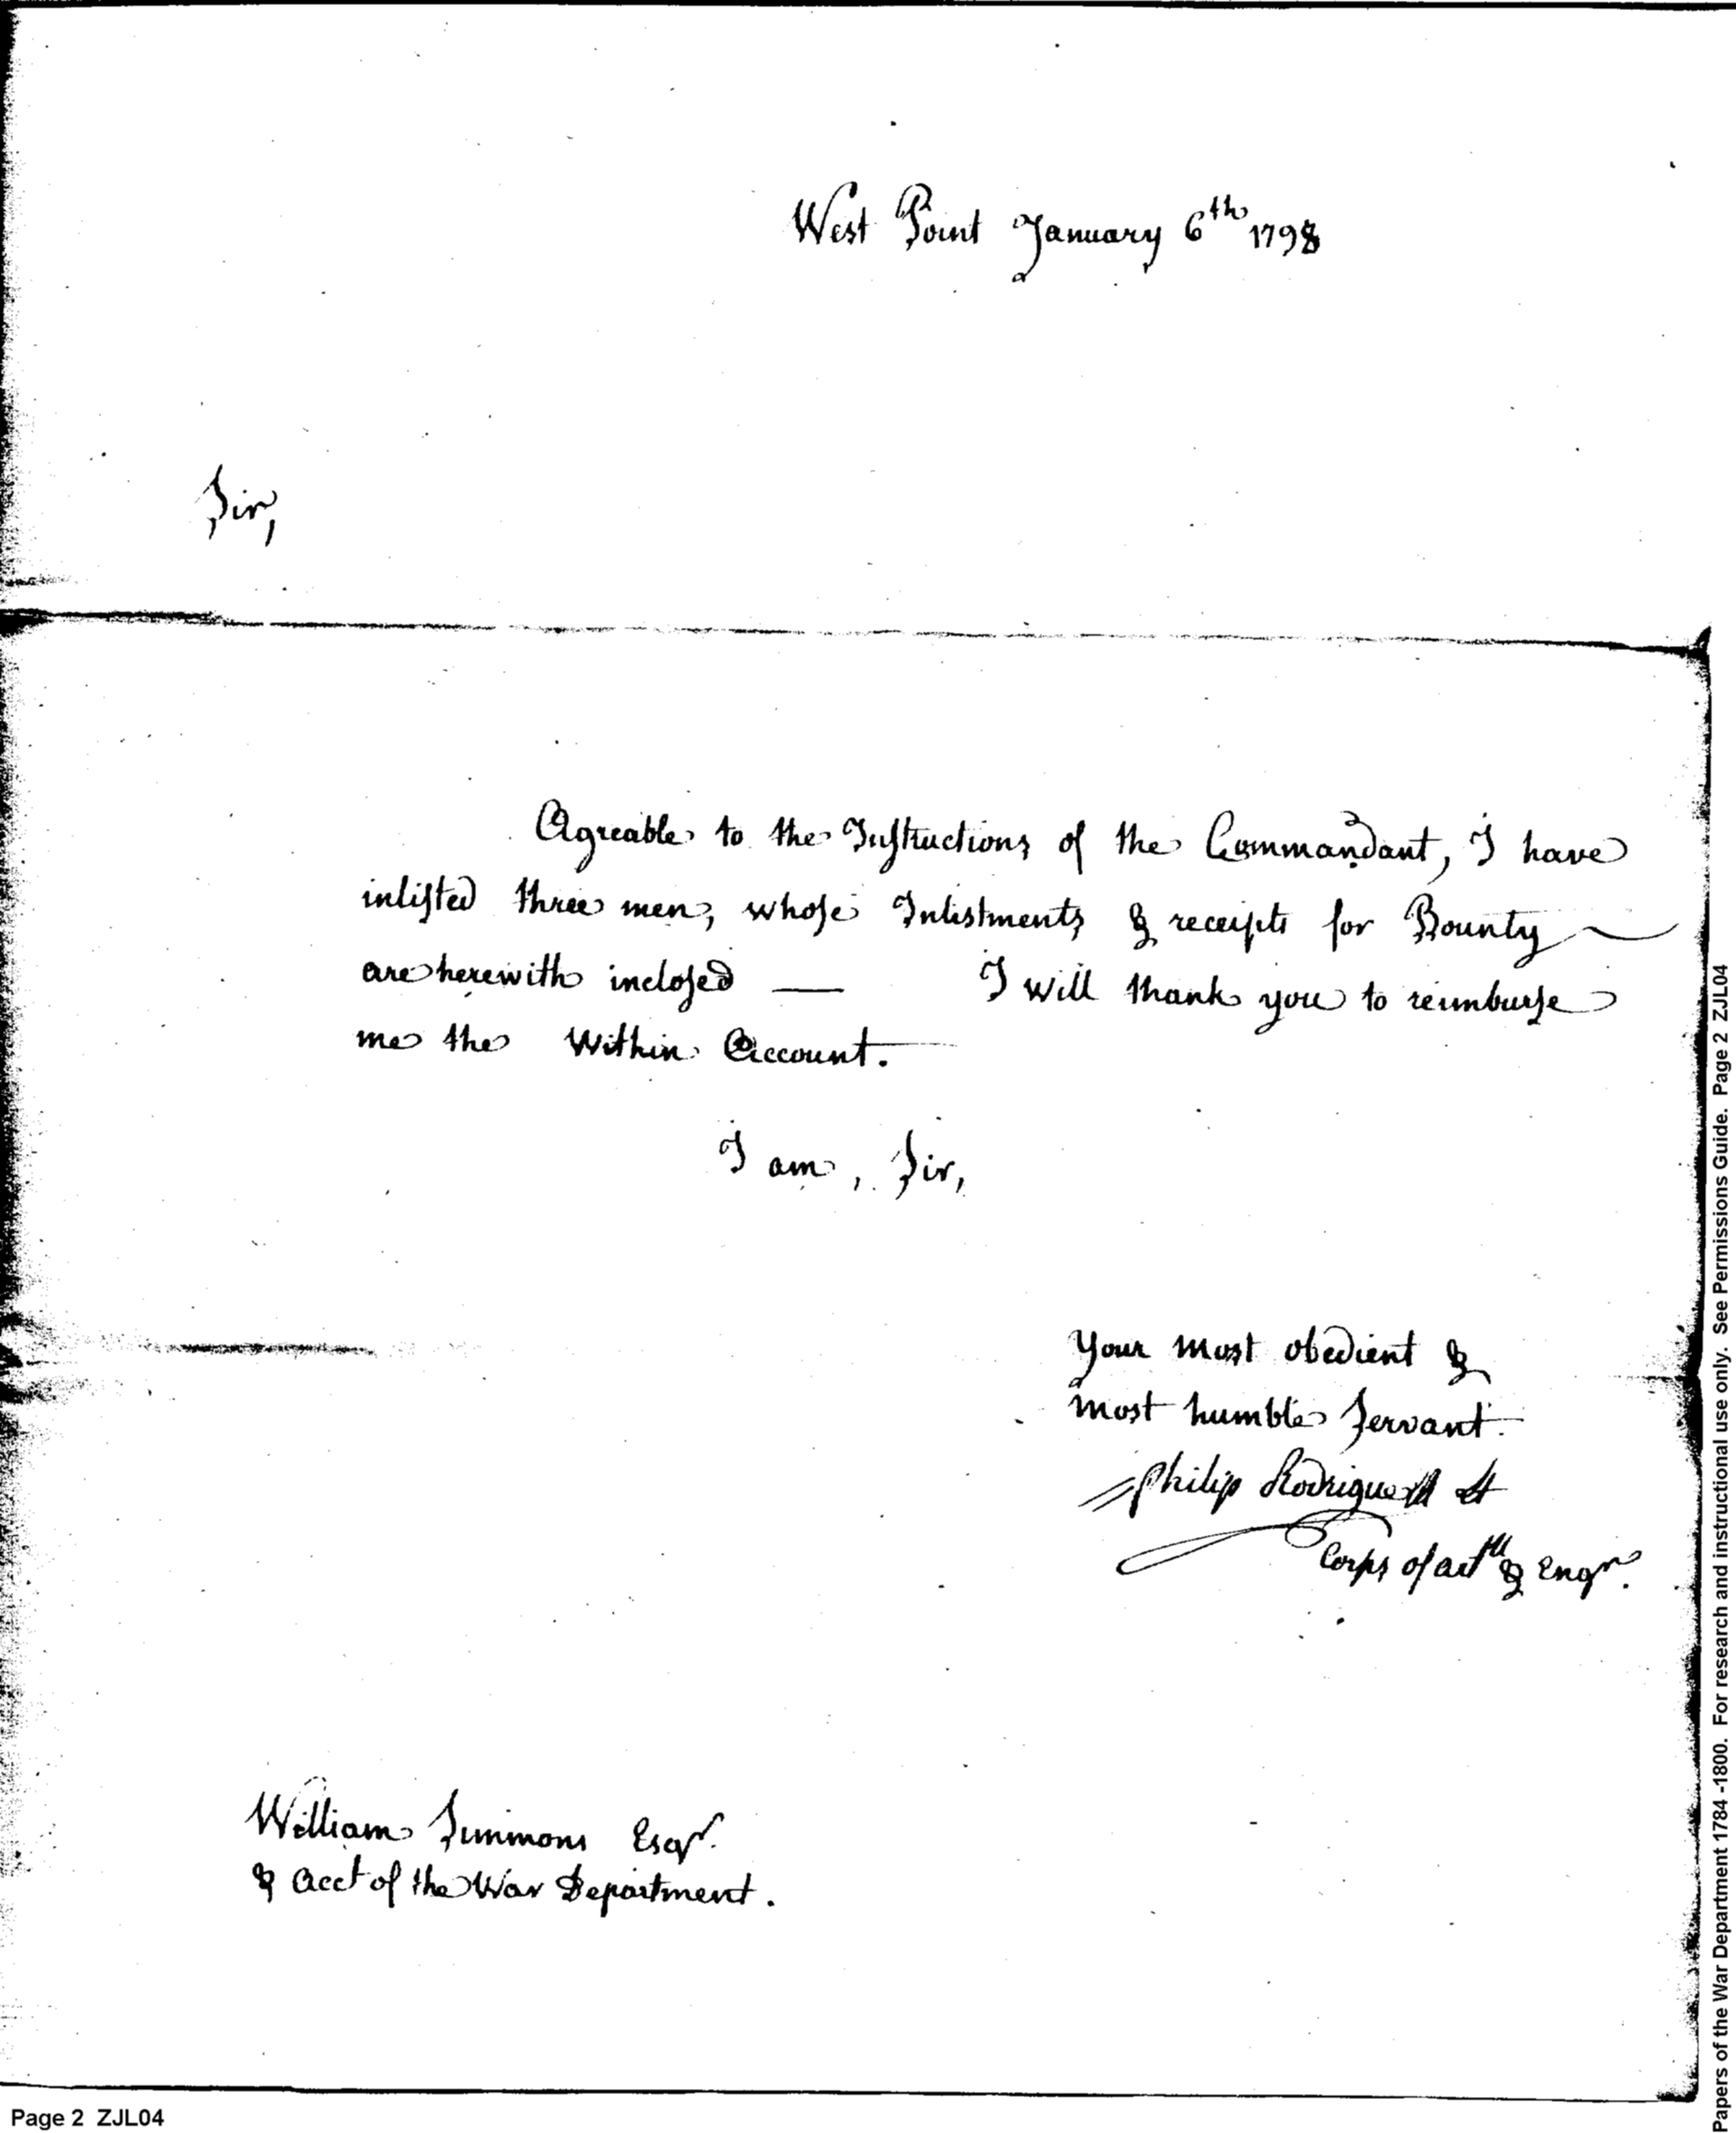 West Point January 6th 1798
Sir,
Agreable to the Instructions of the Commandant, I have
inlisted three men, whose Inlistments & receipts for Bounty
are herewith inclosed — I will thank you to reimburse
me the Within Account.
I am, Sir,
Your most obedient &
most humble Servant.
Philip Rodrigue Lt
Corps of art & Engrs.
William Simmons Esqr.
& Acct of the War Department.
Page 2 ZJL04
Papers of the War Department 1784 -1800. For research and instructional use only. See Permissions Guide. Page 2 ZJL04